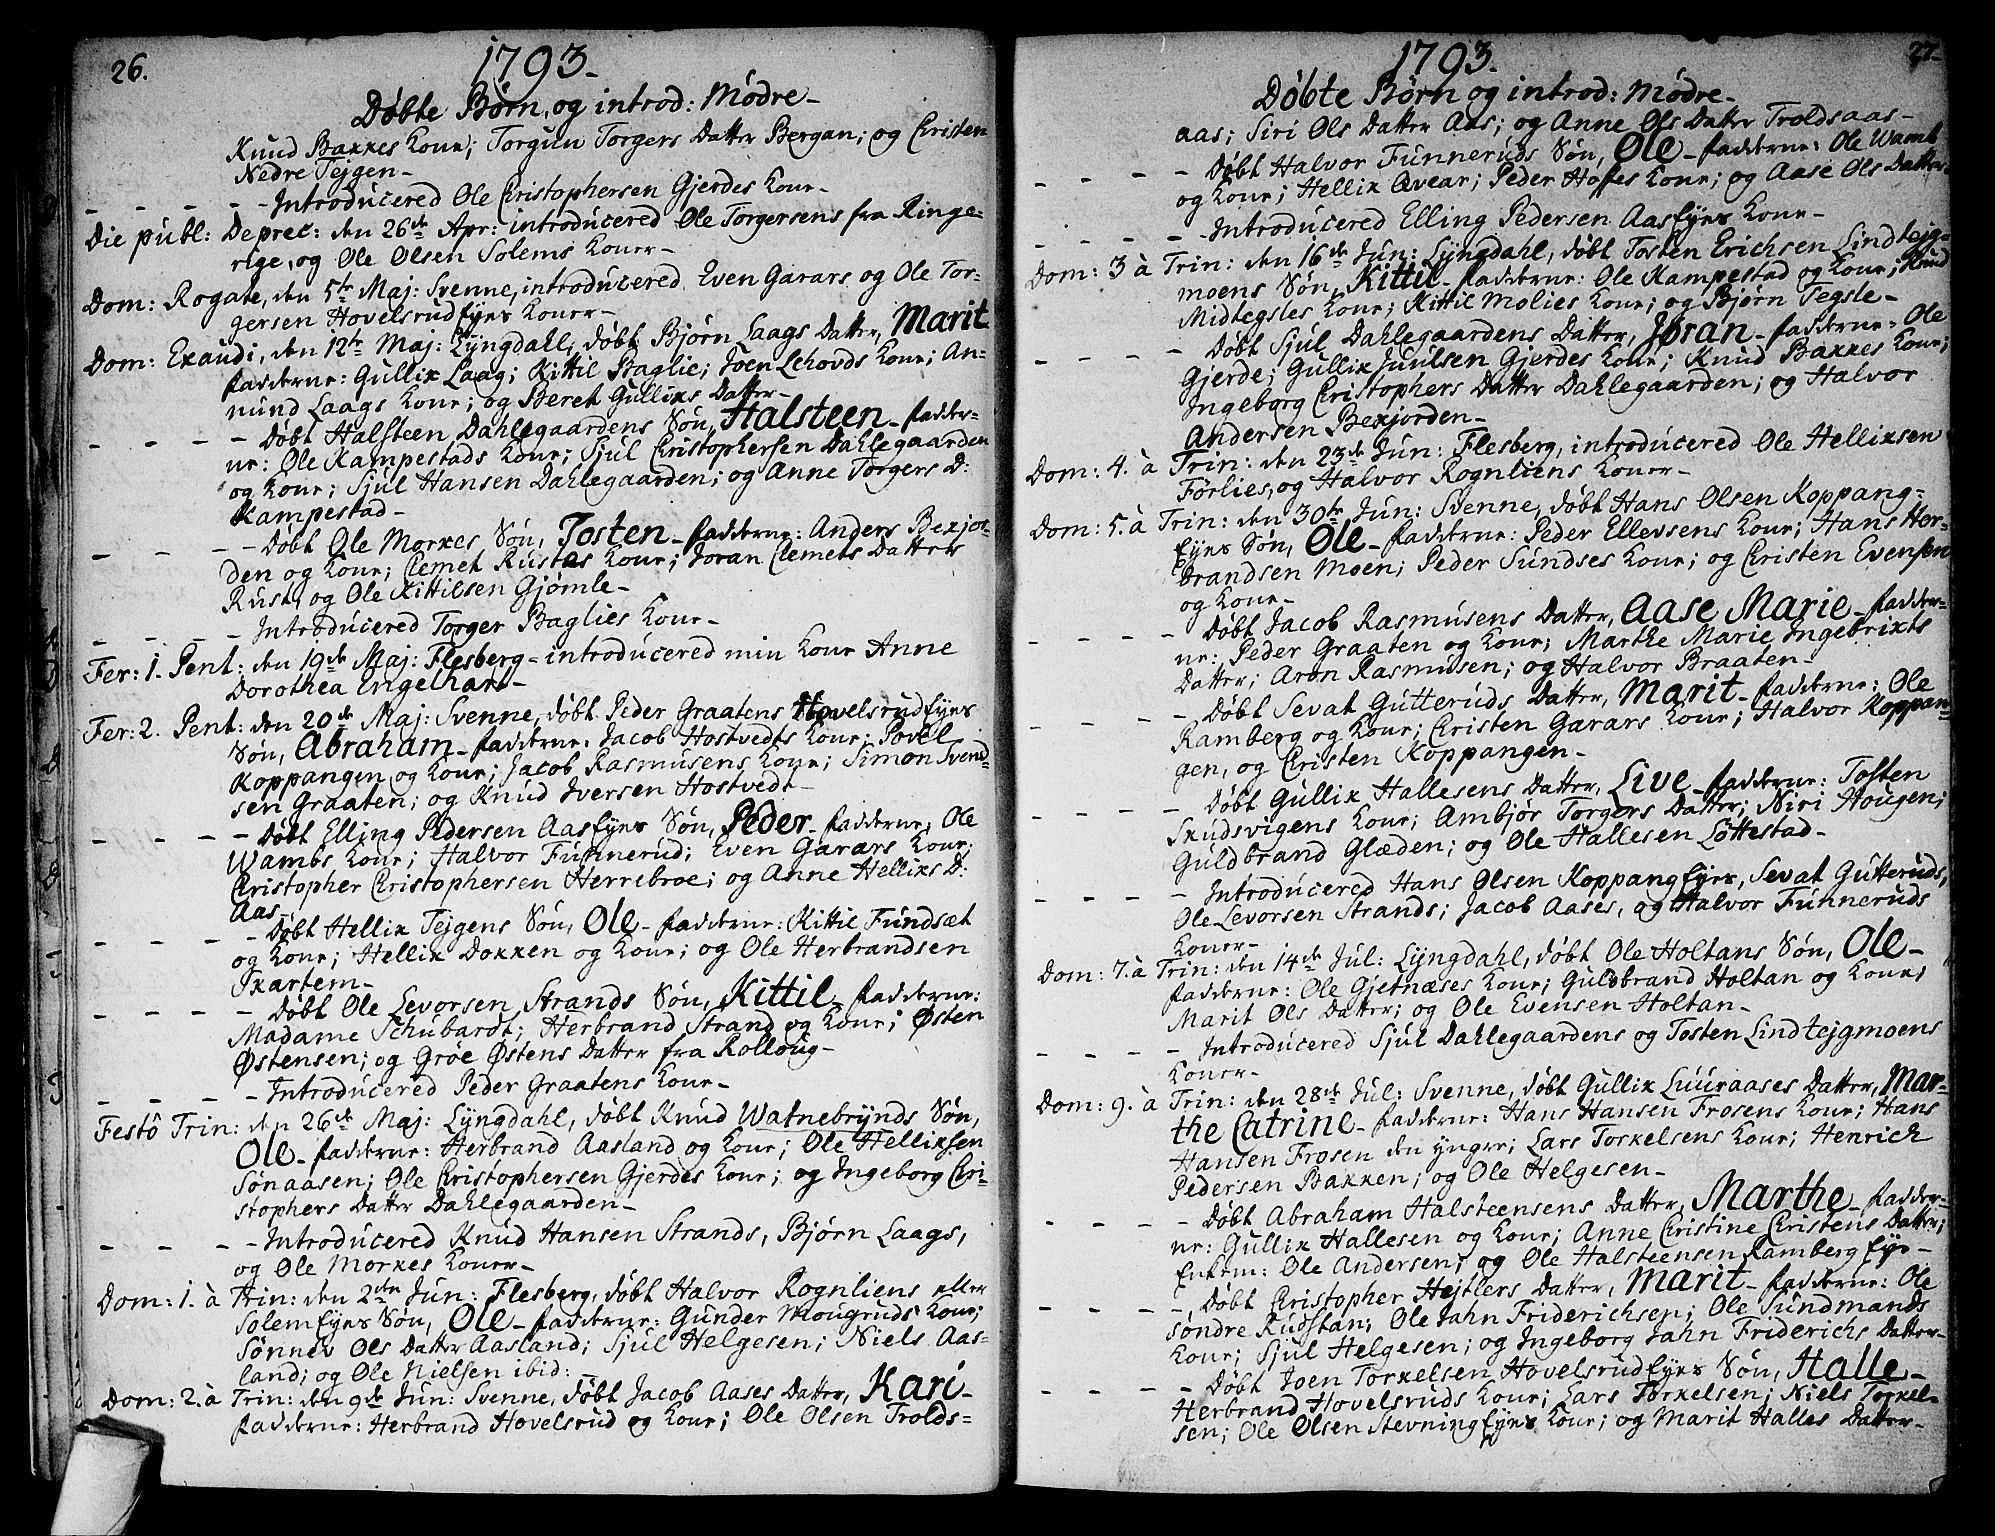 26.
1793.
Døbte Børn, og introd: Mødre_
Knud Bakkes Kone; Torgun Torgers Datter Bergan; og Christen
Nedre Tejgen_
_ _ _ _ _ Introducered Ole Christophersen Gjerdes Kone_
Die publ: Deprec: den 26de Apr: introducered Ole Torgersens fra Ringe=
rige, og Ole Olsen Solems Koner_
Dom: Rogate, den 5te Maj: Svenne, introducered Even Garaas og Ole Tor=
gersen Hovelsrud Ejes Koner_
Dom: Exaudi, den 12te Maj: Lyngdahl, døbt Bjørn Laags Datter, Marit
fadderne: Gullik Laag; Kittil Baglie; Joen Lehovds Kone; An=
nund Laags Kone; og Beret Gulliks Datter_
_ _ _ _ Døbt Halsteen Dahlegaardens Søn, Halsteen_ fadder=
ne: Ole Kampestads Kone; Sjul Christophersen Dahlegaarden
og Kone; Sjul Hansen Dahlegaarden; og Anne Torgers D:
Kampestad_
_ _ _ _ Døbt Ole Morkes Søn, Tosten_ fadderne: Anders Bekjor=
den og Kone; Clemet Rustes Kone; Joran Clemets Datter
Rust, og Ole Kittilsen Gjømle_
_ _ _ _ Introducered Torger Baglies Kone_
Fer: 1. Pent: den 19de Maj: Flesberg_ introducered min Kone Anne
Dorothea Engelhart_
Fer: 2. Pent: den 20de Maj: Svenne, døbt Peder Graatens Hovelsrud Ejes
Søn, Abraham_ fadderne: Jacob Hostvedts Kone; Povel
Koppangen og Kone; Jacob Rasmusens Kone; Simon Svend=
sen Graaten; og Knud Iversen Hostvedt_
_ _ _ _ Døbt Elling Pedersen Aas Ejes Søn, Peder_ fadderne: Ole
Wambs Kone; Halvor Funnerud; Even Garaas Kone;
Christopher Christophersen Herrebroe; og Anne Helliks D:
Aas_
_ _ _ _ Døbt Hellik Tejgens Søn, Ole_ fadderne: Kittil Fundsæt
og Kone; Hellik Dokken og Kone; og Ole Herbrandsen
Skartem_
_ _ _ _ Døbt Ole Levorsen Strands Søn, Kittil_ fadderne:
Madame Schubardt; Herbrand Strand og Kone; Østen
Østensen; og Grøe Østens Datter fra Rolloug_
_ _ _ _ Introducered Peder Graatens Kone_
Festo Trin: den 26de Maj: Lyngdahl, døbt Knud Watnebrynds Søn,
Ole_ fadderne: Herbrand Aasland og Kone; Ole Helliksen
Sønaasen; Ole Christophersen Gjerdes Kone; og Ingeborg Chri=
stophers Datter Dahlegaarden_
_ _ _ _ Introducered Knud Hansen Strands, Bjørn Laags,
og Ole Morkes Koner_
Dom: 1. à Trin: den 2den Jun: Flesberg, døbt Halvor Rognliens eller
Solem Ejes Søn, Ole_ fadderne: Gunder Mougruds Kone;
Sønnev Ols Datter Aasland; Sjul Helgesen; Niels Aas=
land; og Ole Nielsen ibid:
Dom: 2. à Trin: den 9de Jun: Svenne, døbt Jacob Aases Datter, Kari_
fadderne: Herbrand Hovelsrud og Kone; Ole Olsen Trolds=
27_
1793.
Døbte Børn og introd: Mødre_
aas; Siri Ols Datter Aas; og Anne Ols Datter Troldsaas_
_ _ _ _ Døbt Halvor Funneruds Søn, Ole_ fadderne: Ole Wamb
og Kone; Hellik Qvear; Peder Hoffes Kone; og Aase Ols Datter
_ _ _ _ Introducered Elling Pedersen Aas Ejes Kone_
Dom: 3 à Trin: den 16de Jun: Lyngdahl, døbt Tosten Erichsen Lindtejg=
moens Søn, Kittil_ fadderne: Ole Kampestad og Kone; Knud
Midtegsles Kone; Kittil Molies Kone; og Bjørn Tegsle_
_ _ _ _ Døbt Sjul Dahlegaardens Datter, Joran_ fadderne: Ole
Gjerde; Gullik Juulsen Gjerdes Kone; Knud Bakkes Kone;
Ingeborg Christophers Datter Dahlegaarden; og Halvor
Andersen Bekjorden_
Dom: 4. à Trin: den 23de Jun: Flesberg, introducered Ole Helliksen
Førlies, og Halvor Rognliens Koner_
Dom: 5. à Trin: den 30te Jun: Svenne, døbt Hans Olsen Koppang=
Ejes Søn, Ole_ fadderne: Peder Ellevsens Kone; Hans Her=
brandsen Moen; Peder Sundses Kone; og Christen Evensen
og Kone_
_ _ _ _ Døbt Jacob Rasmusens Datter, Aase Marie_ fadder=
ne: Peder Graaten og Kone; Marthe Marie Ingebrikts
Datter; Aron Rasmusen; og Halvor Braaten_
_ _ _ _ Døbt Sevat Gutteruds Datter, Marit_ fadderne: Ole
Ramberg og Kone; Christen Garaas Kone; Halvor Koppan=
gen, og Christen Koppangen_
_ _ _ _ Døbt Gullik Hallesens Datter, Live_ fadderne: Tosten
Skudsvigens Kone; Ambjør Torgers Datter; Niri Hougen;
Guldbrand Glæden; og Ole Hallesen Løttestad_
_ _ _ _ Introducered Hans Olsen Koppang Ejes, Sevat Gutteruds,
Ole Levorsen Strands; Jacob Aases, og Halvor Funneruds
Koner_
Dom: 7. à Trin: den 14de Jul: Lyngdahl, døbt Ole Holtans Søn, Ole_
fadderne: Ole Gjetnæses Kone; Guldbrand Holtan og Kone;
Marit Ols Datter; og Ole Evensen Holtan_
_ _ _ _ Introducered Sjul Dahlegaardens og Tosten Lindtejgmoens
Koner_
Dom: 9. à Trin: den 28de Jul: Svenne, døbt Gullik Luuraases Datter, Mar=
the Catrine_ fadderne: Hans Hansen Frosens Kone; Hans
Hansen Frosen den yngre; Lars Torkelsens Kone; Henrich
Pedersen Bakken; og Ole Helgesen_
_ _ _ _ Døbt Abraham Halsteensens Datter, Marthe_ fadder=
ne: Gullik Hallesen og Kone; Anne Christine Christens Datter;
Enkem: Ole Andersen; og Ole Halsteensen Ramberg Eje_
_ _ _ _ Døbt Christopher Hejtlers Datter, Marit_ fadderne: Ole
søndre Rudstan; Ole Jahn Friderichsen; Ole Sundmands
Kone; Sjul Helgesen; og Ingeborg Jahn Friderichs Datter_
_ _ _ _ Døbt Joen Torkelsen Hovelsrud Ejes Søn, Halle_
Herbrand Hovelsruds Kone; Lars Torkelsen; Niels Torkel=
sen; Ole Olsen Stevning Ejes Kone; og Marit Halles Datter_